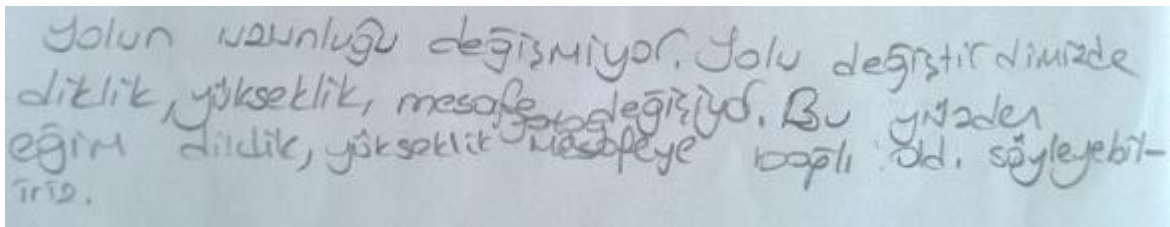 Yolun uzunluğu değişmiyor. Yolu değiştirdimizde
diklik, yükseklik, mesafe değişiyo. Bu yüzden
eğim diklik, yükseklik mesafeye bağlı old. söyleyebil-
iriz.